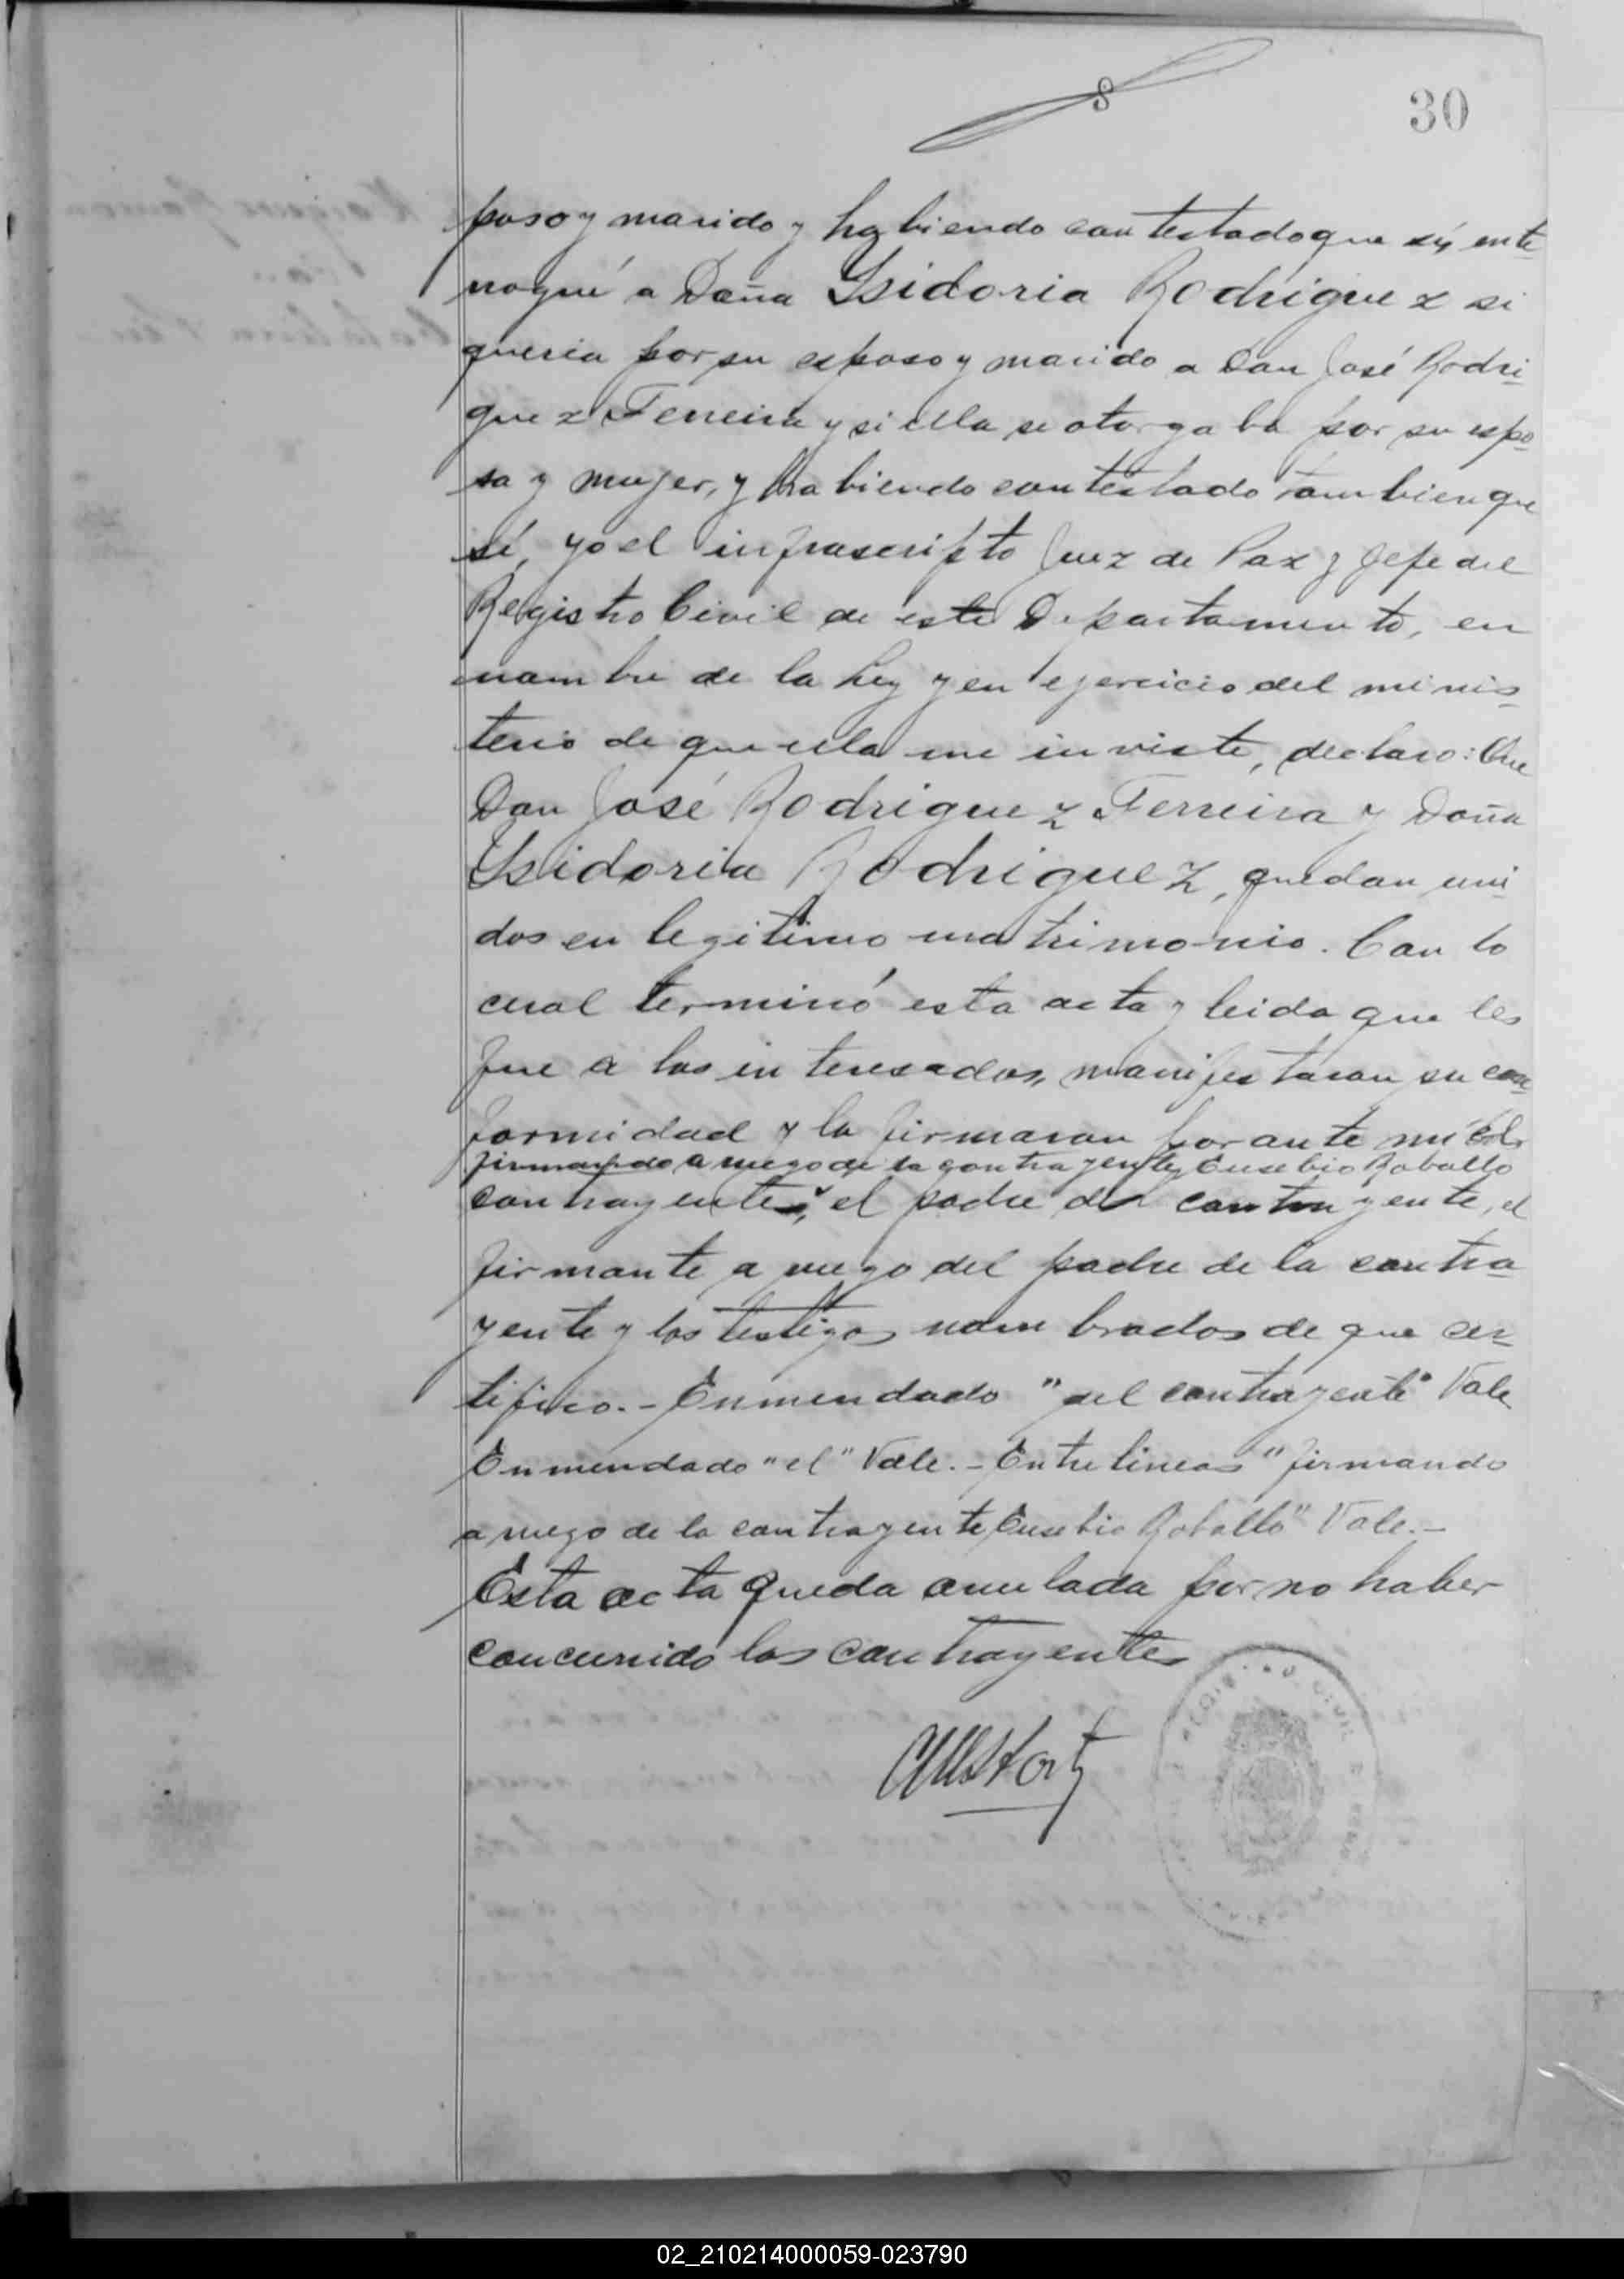 30
poso y marido y habiendo contestado que sí, inte-
rrogué a Doña Ysidoria Rodriguez si
queria por su esposo y marido a Don José Rodri-
guez Ferreira y si ella se otorgaba por su espo-
sa y mujer, y habiendo contestado tambien que
sí, yo el infrascripto Juez de Paz y Jefe del
Registro Civil de este Departamento, en
nombre de la Ley y en ejercicio del minis-
terio de que ella me inviste, declaro: Que
Don José Rodriguez Ferreira y Doña
Ysidoria Rodriguez, quedan uni-
dos en legitimo matrimonio. Con lo
cual terminó esta acta y leida que les
fue a los interesados, manifestaron su con-
formidad y la firmaron por ante mí el
firmando a ruego de la contrayente Eusebio Roballo
contrayente, el padre del contrayente, el
firmante a ruego del padre de la contra-
yente y los testigos nombrados de que cer-
tifico.- Enmendado "del contrayente" Vale
Enmendado "el" Vale.- Entre lineas "firmando
a ruego de la contrayente Eusebio Roballo" Vale.-
Esta acta queda anulada por no haber
concurrido los contrayentes
02_210214000059-023790